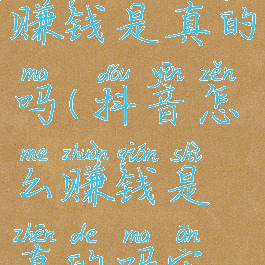 赚钱是真的
ma dǒu yīn zěn
吗(抖音怎
me zhuàn qián shì
么赚钱是
zhēn de ma ān
真的吗安